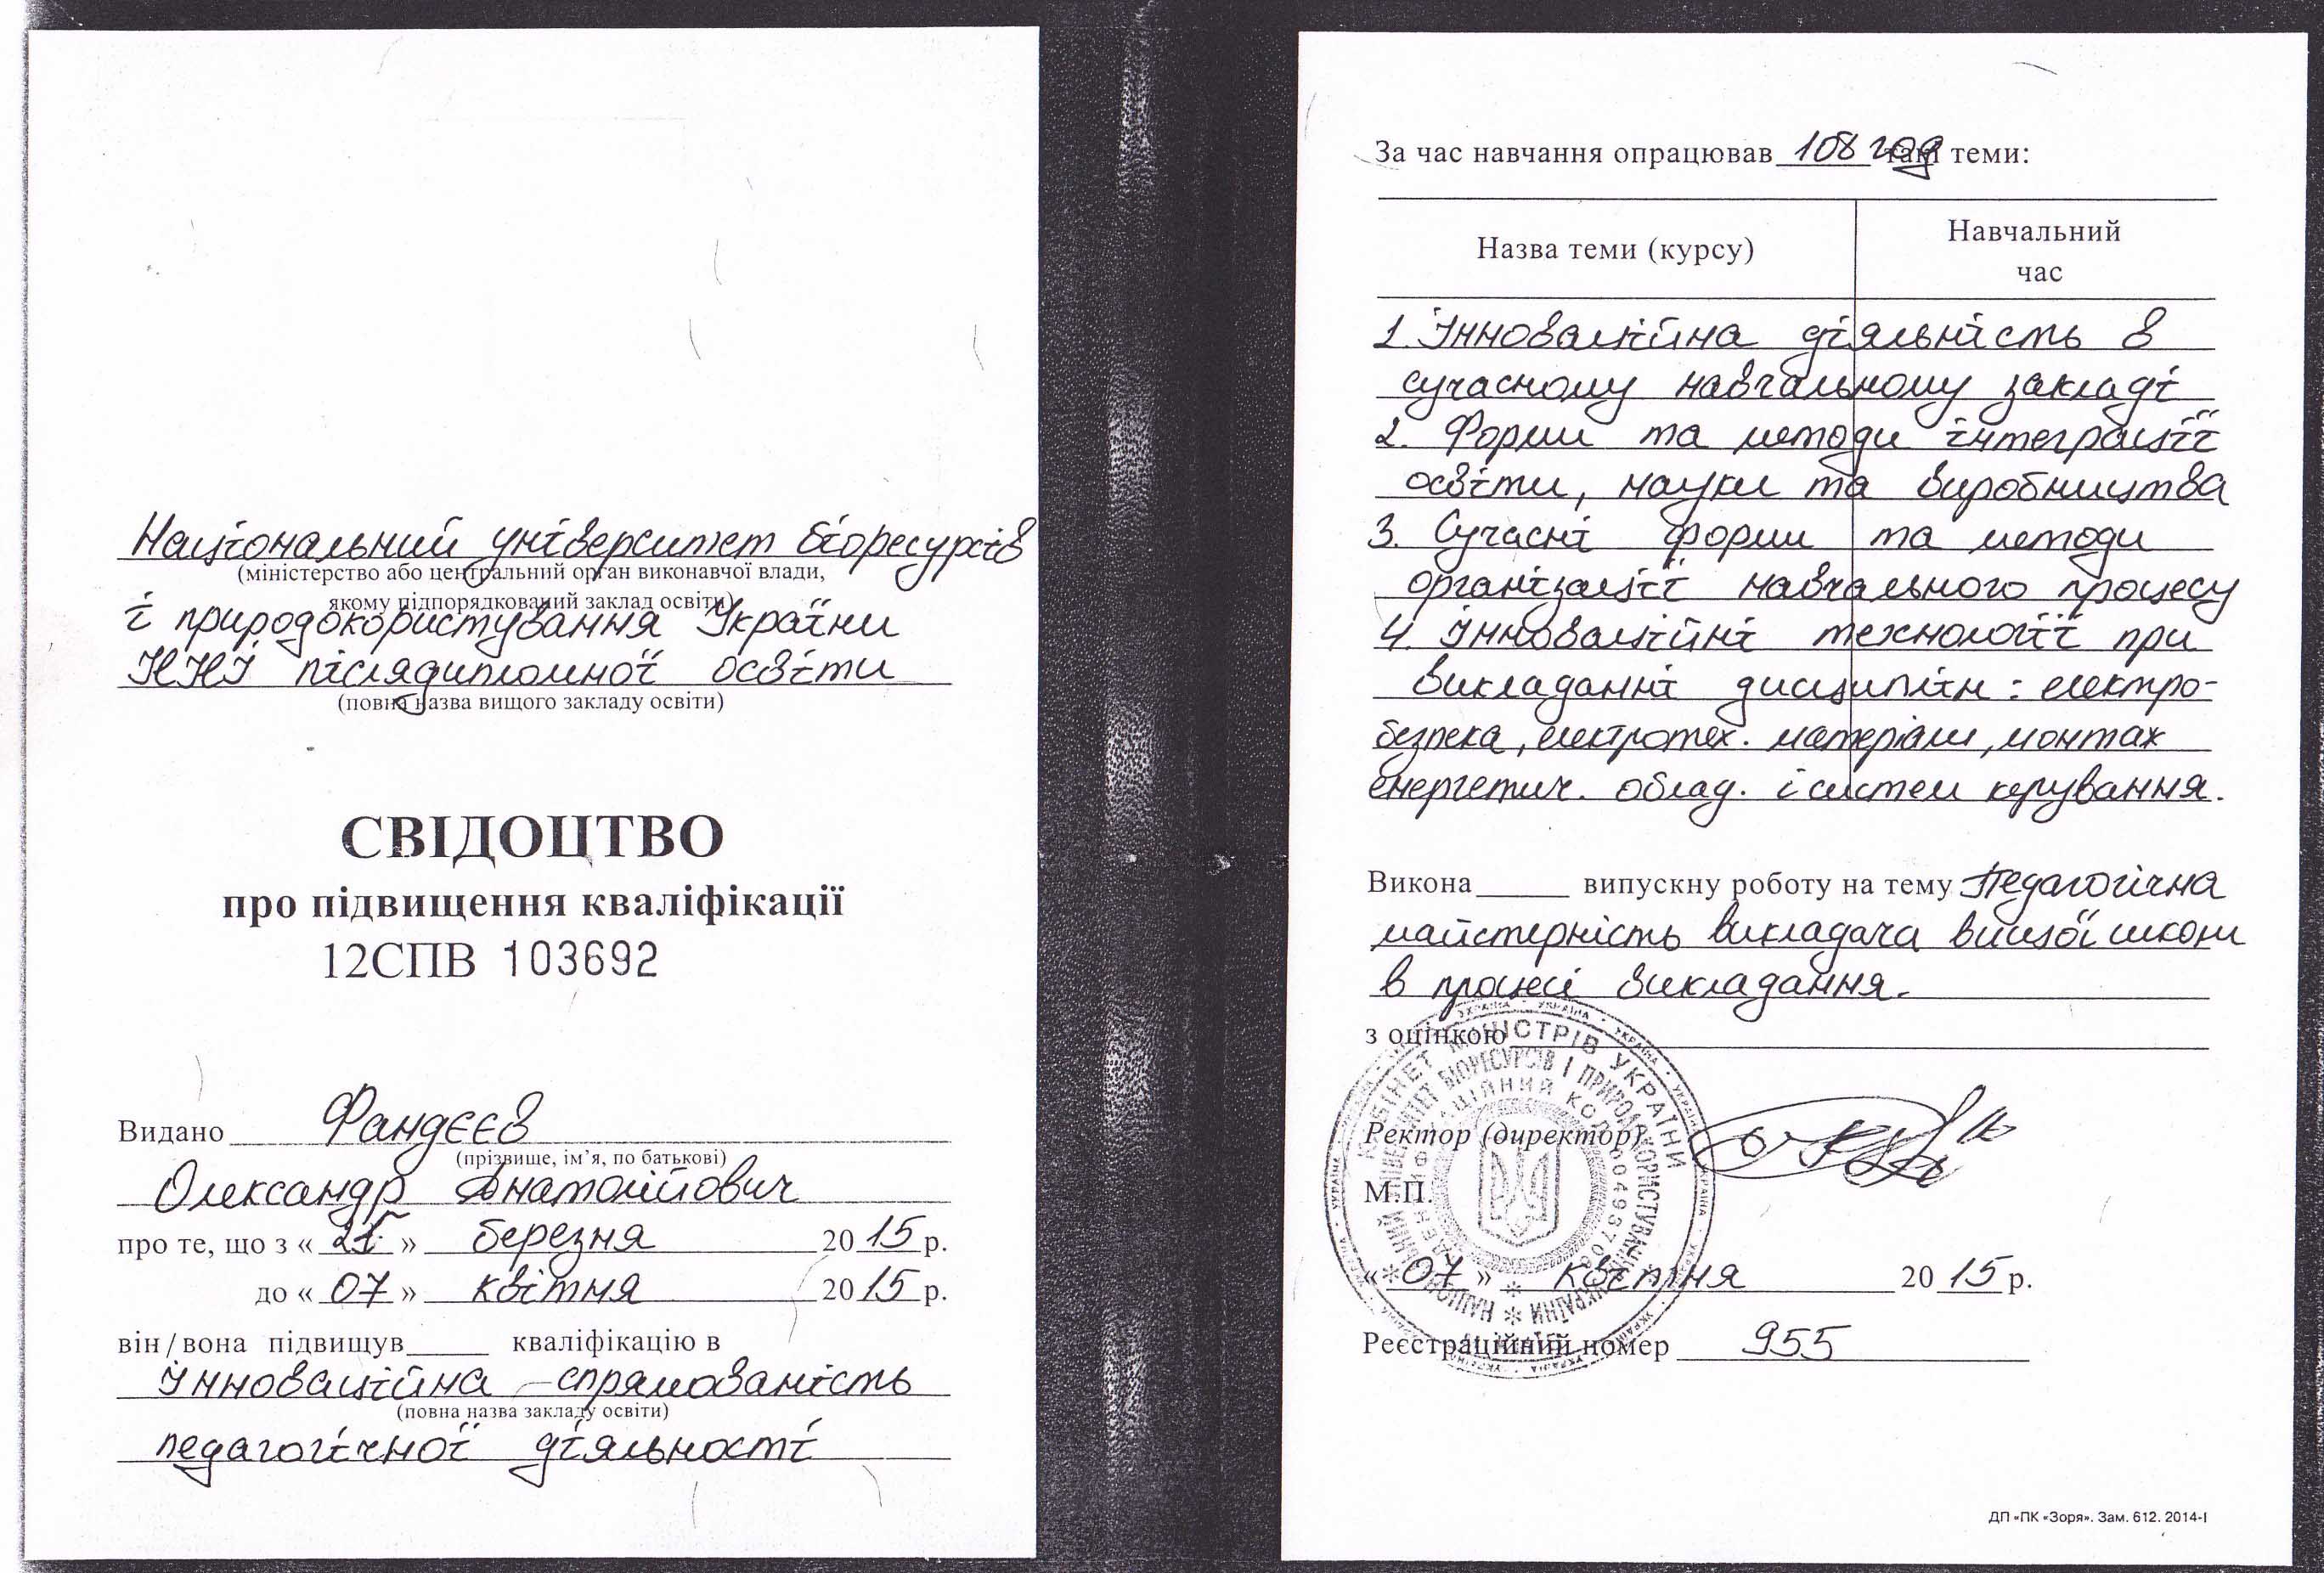 Національний університет біоресурсів
(міністерство або центральний орган виконавчої влади,
якому підпорядкований заклад освіти)
і природокористування України
ННІ післядипломної освіти
(повна назва вищого закладу освіти)
СВІДОЦТВО
про підвищення кваліфікації
12СПВ 103692
Видано Фандєєв
(прізвище, ім’я, по батькові)
Олександр Анатолійович
про те, що з « » березня 2015 р.
до « 07 » квітня 2015 р.
він/вона підвищув____ кваліфікацію в
Інноваційна спрямованість
(повна назва закладу освіти)
педагогічної діяльності
За час навчання опрацював 108 год такі теми:
Назва теми (курсу)
Навчальний
час
1. Інноваційна діяльність в
сучасному навчальному закладі
2. Форми та методи інтеграції
освіти, науки та виробництва
3. Сучасні форми та методи
організації навчального процесу
4. Інноваційні технології при
викладанні дисциплін: електро-
безпека, електротех. матеріали, монтаж
енергетич. облад. і систем керування.
Викона____ випускну роботу на тему Педагогічна
майстерність викладача вищої школи
в процесі викладання.
з оцінкою
Ректор (директор)
М.П.
« 07 » квітня 2015 р.
Реєстраційний номер 955
УКРАЇНА
КАБІНЕТ МІНІСТРІВ УКРАЇНИ
НАЦІОНАЛЬНИЙ УНІВЕРСИТЕТ БІОРЕСУРСІВ І ПРИРОДОКОРИСТУВАННЯ УКРАЇНИ
ІДЕНТИФІКАЦІЙНИЙ КОД 00493706
ДП «ПК «Зоря». Зам. 612. 2014-І